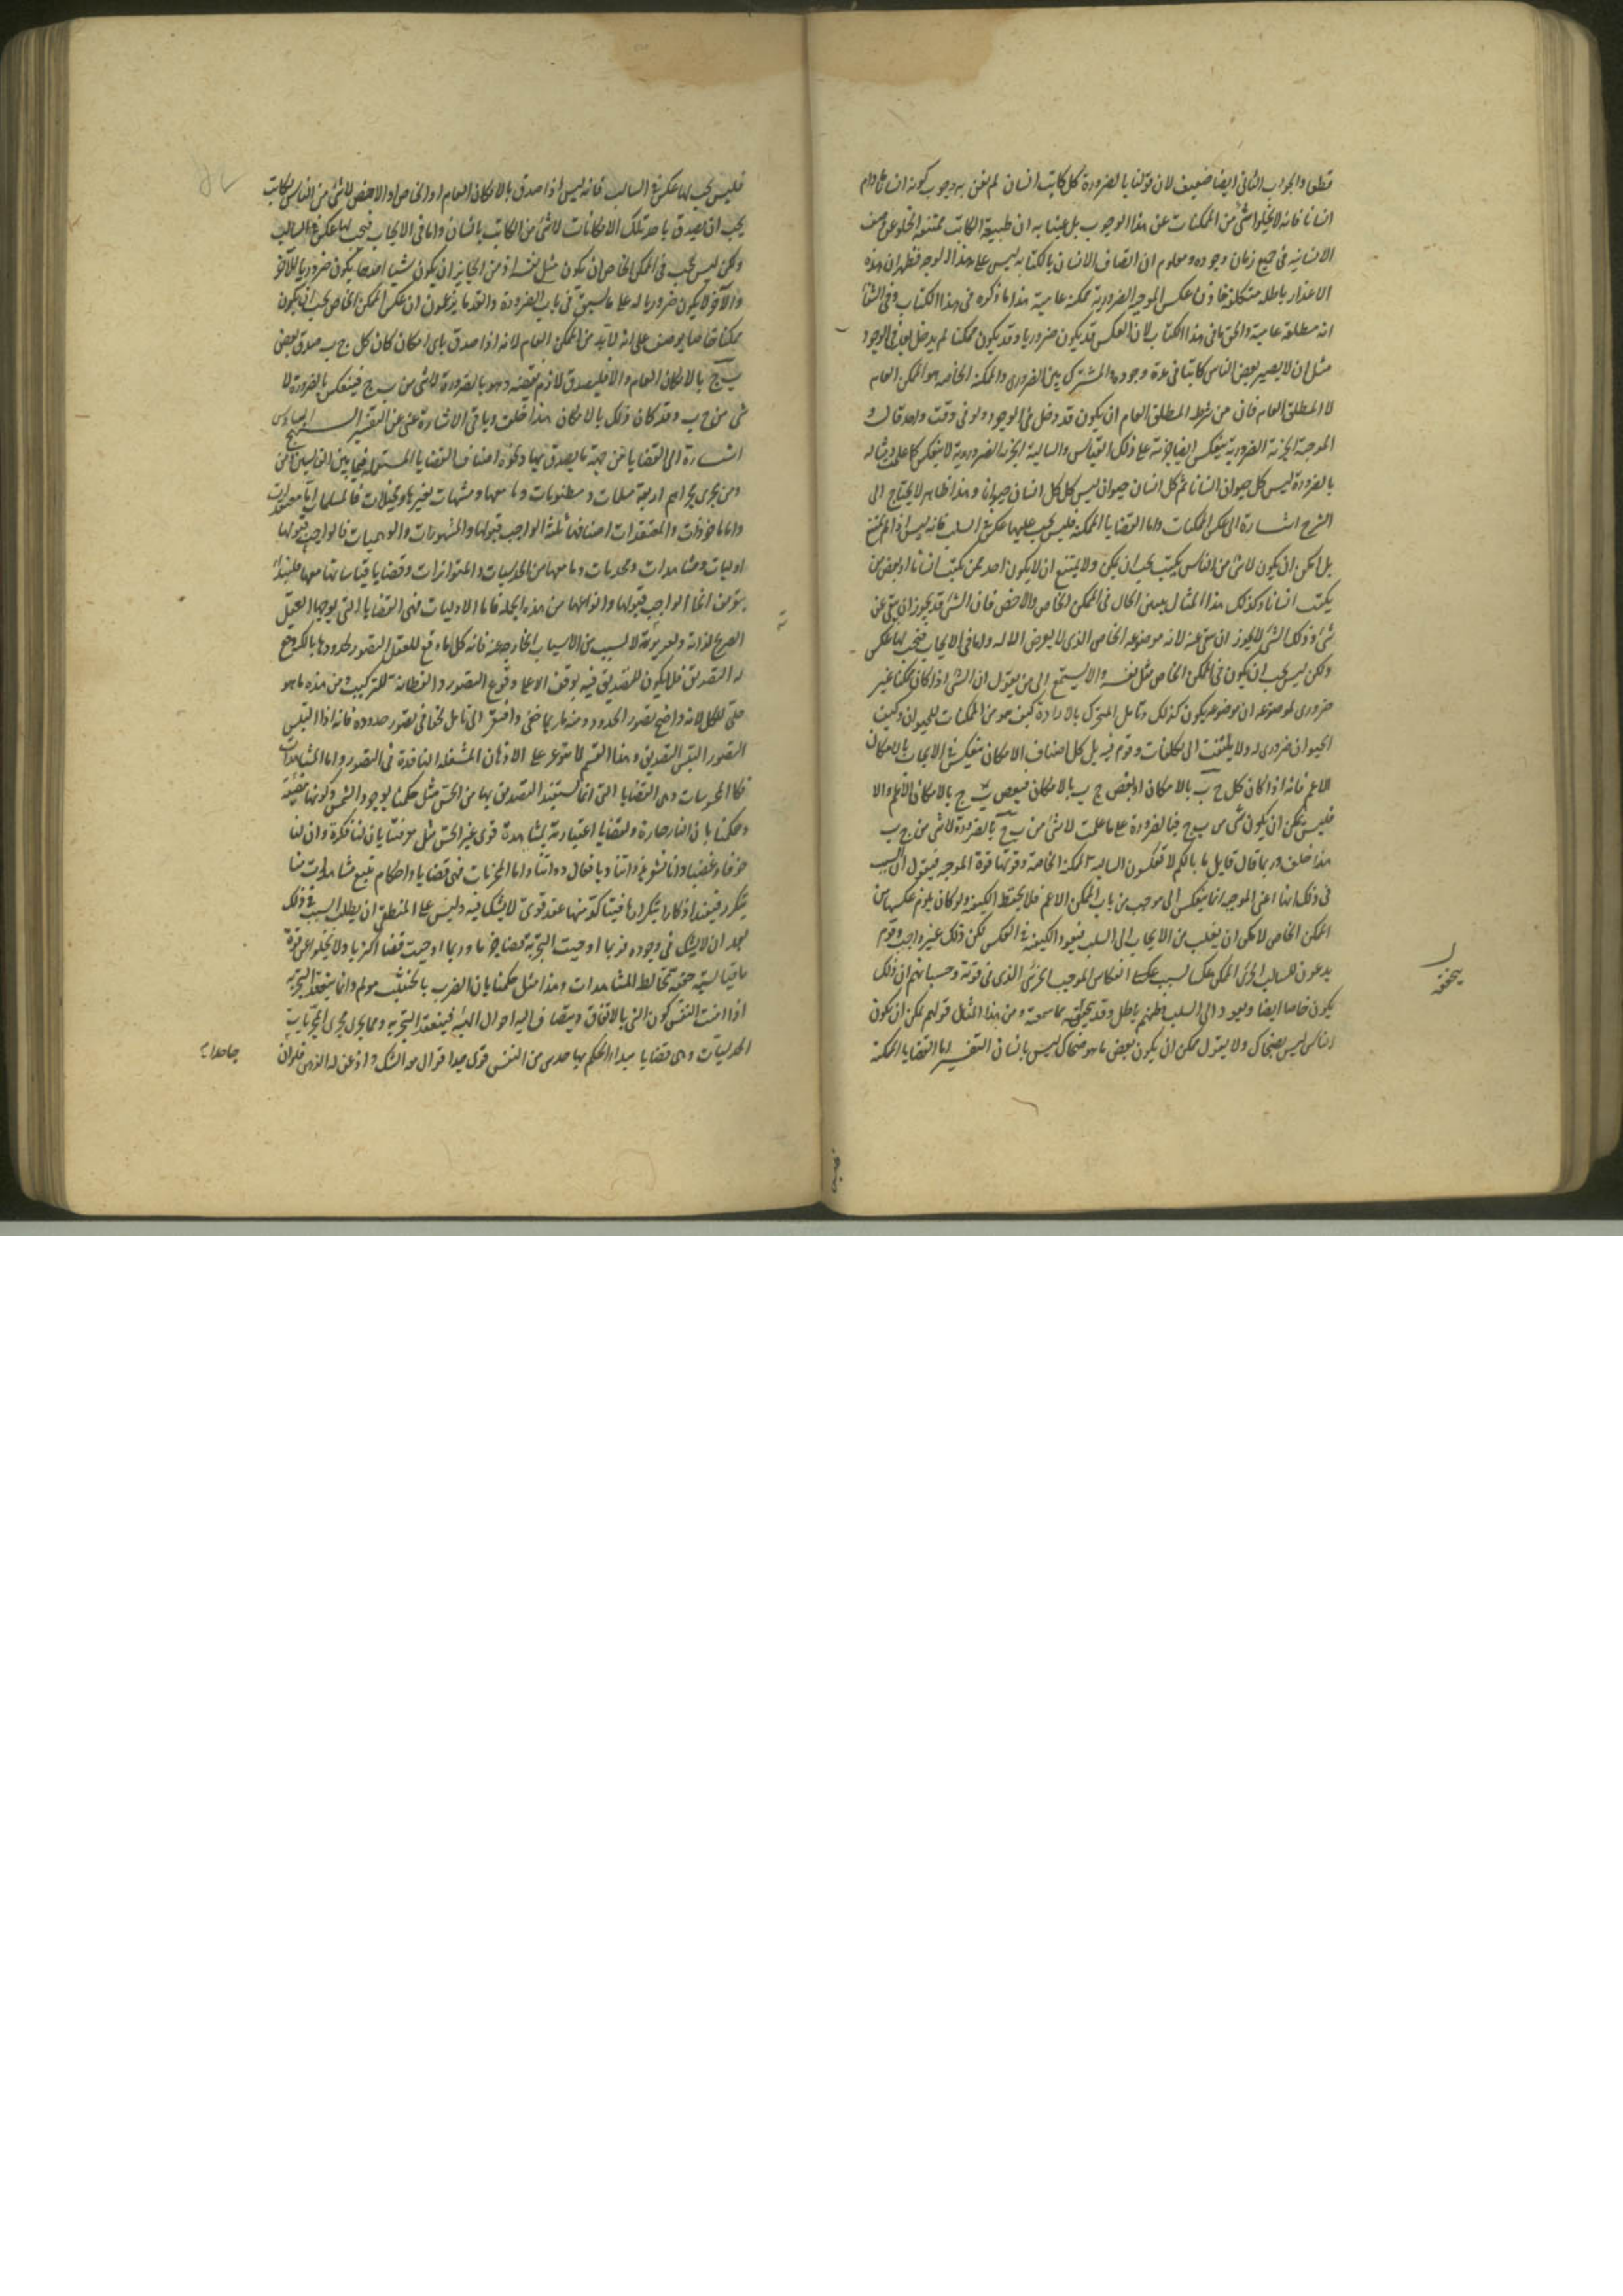 قطعا والجواب الثانى ايضا ضعيف لان قولنا بالضرورة كل كاتب انسان لم نعن به وجوب كونه انسانا مادام
انسانا فانه لا يخلوا شئ من الممكنات عن هذا الوجوب بل عنينا به ان طبيعة الكاتب ممتنعة الخلو عن وصف
الانسانية فى جميع زمان وجوده ومعلوم ان اتصاف الانسان بالكتابه ليس على هذا الوجه فظهر ان هذه
الاعذار باطله متكلفة فاذن عكس الموجبه الضرورية ممكنة عامية هذا ما ذكره فى هذا الكتاب وفى الشفا
انه مطلقه عامية والحق ما فى هذا الكتاب لان العكس قد يكون ضروريا وقد يكون ممكنا لم يدخل بعد فى الوجود
مثل ان لا يصير بعض الناس كاتبا فى مدة وجوده والمشترك بين الضرورى والممكنة الخاصه هو الممكن العام
لا المطلق العام فان من شرط المطلق العام ان يكون قد دخل فى الوجود ولو فى وقت واحد قال
الموجبة الجزئية الضرورية ينعكس ايضا جزئية على ذلك القياس والسالبة الجزئيه الضرورية لا ينعكس كما علمت ومثاله
بالضرورة ليس كل حيوان انسانا ثم كل انسان حيوان ليس كل انسان حيوانا وهذا ظاهر لا يحتاج الى
الشرح اشارة الى عكس الممكنات واما القضايا الممكنه فليس يجب عليها عكس فى السلب فانه ليس اذا لم يمتنع
بل امكن ان يكون لا شئ من الناس يكتب يجب ان يمكن ولا يمتنع ان لا يكون احد ممن يكتب انسانا او بعض من
يكتب انسانا وكذلك هذا المثال يبين الحال فى الممكن الخاص والاخص فان الشئ قد يجوز ان ينفى عن
شئ وذلك الشئ لا يجوز ان ينفى عنه لانه موضوعه الخاص الذى لا يعرض الا له واما فى الايجاب فيجب لها عكس
ولكن ليس يجب ان يكون فى الممكن الخاص مثل نفسه ولا يستمع الى من يقول ان الشئ اذا كان ممكنا غير
ضرورى لموضوعه ان موضوعه يكون كذلك وتامل المتحرك بالارادة كيف هو من الممكنات للحيوان وكيف
الحيوان ضرورى له ولا يلتفت الى تكلفات قوم فيه بل كل اصناف الامكان ينعكس فى الايجاب بالامكان
الاعم فانه اذا كان كل ج ب بالامكان او بعض ج ب بالامكان فبعض ب ج بالامكان الاعم والا
فليس يمكن ان يكون شئ من ب ج فبالضرورة على ما علمت لا شئ من ب ج بالضرورة لا شئ من ج ب
هذا خلف وربما قال قايل ما بالكم لا تعكسون السالبة الممكنة الخاصة وقوتها قوة الموجبه فنقول ان السبب
فى ذلك انها اعنى الموجبه انما ينعكس الى موجب من باب الممكن الاعم فلا يحفظ الكيفيه ولو كان يلزم عكسها من
الممكن الخاص لا مكن ان ينقلب من الايجاب الى السلب فتعود الكيفيه فى العكس لكن ذلك غير واجب وقوم
يدعون للسالب الجزئى الممكن عكسا لسبب انعكاس الموجب الجزئى الذى فى قوته وحسبانهم ان ذلك
يكون خاصا ايضا ويعود الى السلب وظنهم باطل قد تحققه مما سمعته ومن هذا المثال قولهم يمكن ان يكون
بعض الناس ليس بضحاك ولا يقول ممكن ان يكون بعض ما هو ضحاك ليس بانسان التفسير اما القضايا الممكنة
فليس يجب لها عكس فى السالب فانه ليس اذا صدق بالامكان العام او الخاص او الاخص لا شئ من الناس بكاتب
يجب ان يصدق باحد تلك الامكانات لا شئ من الكاتب بانسان واما فى الايجاب فيجب لها عكس
ولكن ليس يجب فى الممكن الخاص ان يكون مثل نفسه اذ من الجايز ان يكون شيئا احدهما يكون ضروريا للآخر
والآخر لا يكون ضروريا له على ما سبق فى باب الضرورة والقدما يزعمون ان عكس الممكن الخاص يجب ان يكون
ممكنا خاصا على انه لابد من الممكن العام لانه اذا صدق باى امكان كان كل ج ب صدق بعض
ب ج بالامكان العام والا فليصدق لازم نقيضه وهو بالضرورة لا شئ من ب ج فينعكس بالضرورة لا
شئ من ج ب وقد كان ذلك بالامكان هذا خلف وباقى الاشارة غنى عن التفسير النهج السادس
اشارة الى القضايا من جهة ما يصدق بها ونحوه اصناف القضايا المستعمله فيما بين القايسين
ومن يجرى مجراهم اربعة مسلمات ومظنونات وما معها ومشبهات بغيرها ومخيلات فالمسلمات اما معتقدات
واما ماخوذات والمعتقدات اصنافها ثلثة الواجب قبولها والمشهورات والوهميات فالواجب قبولها
اوليات ومشاهدات ومجربات وما معها من الحدسيات والمتواترات وقضايا قياساتها معها فلنبدأ
بتعريف انحا الواجب قبولها وانواعها من هذه الجملة فاما الاوليات فهى القضايا التى يوجبها العقل
الصريح لذاته ولغريزته لا لسبب من الاسباب الخارجة عنه فانه كلما وقع للعقل التصور لحدودها بالكنه وقع
له التصديق فلا يكون للتصديق فيه توقف الا على وقوع التصور والفطانة للتركيب ومن هذه ما هو
جلى للكل لانه واضح تصور الحدود ومنه ما ربما خفى وافتقر الى تامل لخفا فى تصور حدوده فانه اذا التبس
التصور التبس التصديق وهذا القسم لا يتوعر على الاذهان المشتعله النافذة فى التصور واما المشاهدات
فكالمحسوسات وهى القضايا التى انما نستفيد التصديق بها من الحس مثل حكمنا بوجود الشمس وكونها مضيئة
وحكمنا بان النار حارة وكقضايا اعتبارية بمشاهدة قوى غير الحس مثل معرفتنا بان لنا فكرة وان لنا
خوفا وغضبا وانا نشعر بذواتنا وبافعال ذواتنا واما المجربات فهى قضايا واحكام تتبع مشاهدات منا
يتكرر فيفيد اذكارا بتكرارها فيتاكد منها عقد قوى لا يشك فيه وليس على المنطقى ان يطلب السبب فى ذلك
بعد ان لا يشك فى وجوده فربما اوجبت التجربة قضا جزما وربما اوجبت قضا اكثريا ولا يخلو عن قوة
ما قياسية خفية تخالط المشاهدات وهذا مثل حكمنا بان الضرب بالخشب مولم وانما ينعقد التجربة
اذا امنت النفس كون الشئ بالاتفاق وينضاف اليه احوال الهيئة فينعقد التجربه ومما يجرى مجرى المجربات
الحدسيات وهى قضايا مبدأ الحكم بها حدس من النفس قوى جدا فزال معه الشك واذعن له الذهن فلو ان
جاحدا